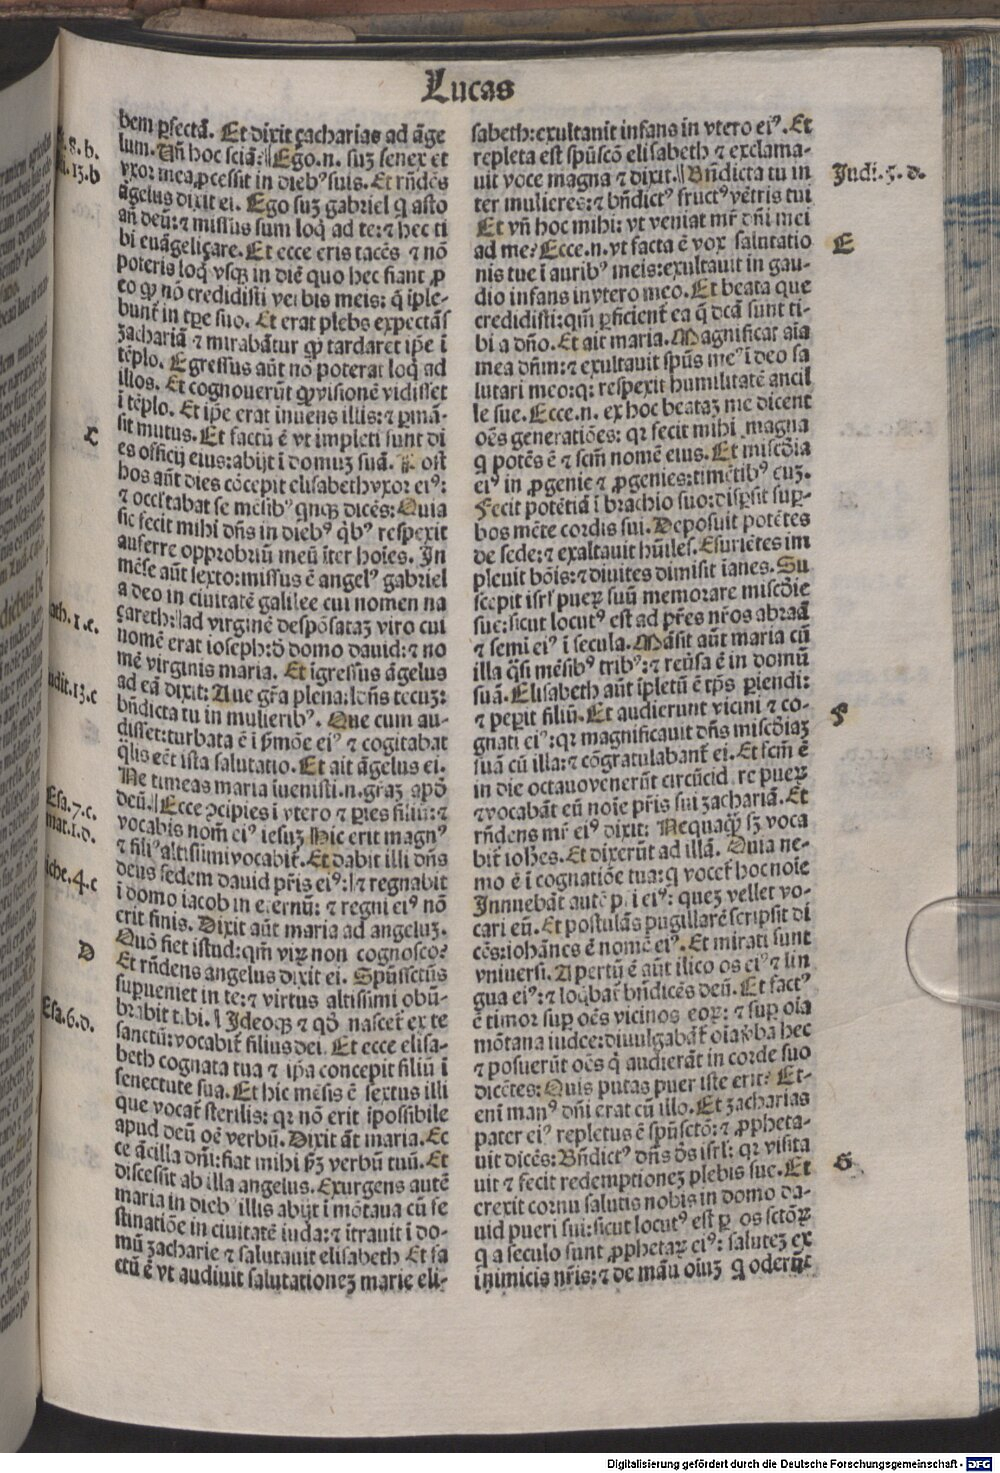 Lucas
bem ꝑfectā. Et dixit çacharias ad āge
lum. Uñ hoc sciā? Ego.n. suꝫ senex et
vxor mea ꝓcessit in diebꝰ suis. Et rñdēs
āgelus dixit ei. Ego suꝫ gabriel q asto
añ deū: ⁊ missus sum loq̄ ad te: ⁊ hec ti
bi euāgeliçare. Et ecce eris tacēs ⁊ nō
poteris loq̄ vsqꝫ in diē quo hec fiant ꝓ
eo ꝙ nō credidisti verbis meis: q̄ īple-
bunt̄ in tꝑe suo. Et erat plebs expectās
zachariā ⁊ mirabātur ꝙ tardaret ip̄e ī
tēplo. Egressus aūt nō poterat loq̄ ad
illos. Et cognouerūt ꝙ visionē vidisset
ī tēplo. Et ip̄e erat innuens illis: ⁊ ꝑmā-
sit mutus. Et factū ē vt impleti sunt di
es officij eius: abijt ī domuꝫ suā. Post
hos aūt dies cōcepit elisabeth vxor eiꝰ:
⁊ occītabat se mēsibꝰ qnqꝫ dicēs: Quia
sic fecit mihi dñs in diebꝰ qͥbꝰ respexit
auferre opprobriū meū īter hoīes. In
mēse aūt sexto: missus ē angelꝰ gabriel
a deo in ciuitatē galilee cui nomen na
çareth: ad virginē despōsataꝫ viro cui
nomē erat ioseph: d̄ domo dauid: ⁊ no
mē virginis maria. Et īgressus āgelus
ad eā dixit: Aue gr̄a plena: dñs tecuꝫ:
bñdicta tu in mulieribꝰ. Que cum au-
disset: turbata ē ī ẜmōe eiꝰ ⁊ cogitabat
qͣlis eēt ista salutatio. Et ait āgelus ei.
Ne timeas maria īuenisti.n. gr̄aꝫ apd̄
deū. Ecce ↄcipies ī vtero ⁊ ꝑies filiū: ⁊
vocabis nom̄ eiꝰ iesuꝫ Hic erit magnꝰ
⁊ filiꝰ altissimi vocabit̄. Et dabit illi dñs
deus sedem dauid p̄ris eiꝰ: ⁊ regnabit
ī domo iacob in eternū: ⁊ regni eiꝰ nō
erit finis. Dixit aūt maria ad angeluꝫ.
Quō fiet istud: qm̄ viꝝ non cognosco?
Et rñdens angelus dixit ei. Spūssctūs
supueniet in te: ⁊ virtus altissimi obū-
brabit tibi. Ideoqꝫ ⁊ qd̄ nascet̄ ex te
sanctū: vocabit̄ filius dei. Et ecce elisa-
beth cognata tua ⁊ ip̄a concepit filiū ī
senectute sua. Et hic mēsis ē sextus illi
que vocat̄ sterilis: qꝛ nō erit īpossibile
apud deū oē verbū. Dixit āt maria. Ec
ce ācilla dñi: fiat mihi ẜꝫ verbū tuū. Et
discessit ab illa angelus. Exurgens autē
maria in diebꝰ illis abijt ī mōtaua cū fe
stinatiōe in ciuitatē iuda: ⁊ ītrauit ī do-
mū zacharie ⁊ salutauit elisabeth Et fa
ctū ē vt audiuit salutationeꝫ marie eli-
sabeth: exultauit infans in vtero eiꝰ. Et
repleta est spūscō elisabeth ⁊ exclama-
uit voce magna ⁊ dixit. Bñdicta tu in
ter mulieres: ⁊ bñdictꝰ fructꝰ vētris tui
Et vñ hoc mihi: vt veniat mr̄ dñi mei
ad me? Ecce.n. vt facta ē vox salutatio
nis tue ī auribꝰ meis: exultauit in gau-
dio infans in vtero meo. Et beata que
credidisti: qm̄ ꝑficient̄ ea q̄ dcā sunt ti-
bi a dño. Et ait maria. Magnificat aīa
mea dñm: ⁊ exultauit spūs meꝰ ī deo sa
lutari meo: qꝛ respexit humilitatē ancil
le sue. Ecce.n. ex hoc beataꝫ me dicent
oēs generatiōes: qꝛ fecit mihi magna
q potēs ē ⁊ scm̄ nomē eius. Et miscd̄ia
eiꝰ in ꝓgenie ⁊ ꝓgenies: timētibꝰ euꝫ.
Fecit potētiā ī brachio suo: disꝑsit sup-
bos mēte cordis sui. Deposuit potētes
de sede: ⁊ exaltauit hūiles. Esuriētes im
pleuit bōis: ⁊ diuites dimisit īanes. Su
scepit isrl̄ pueꝝ suū memorare miscd̄ie
sue: sicut locutꝰ est ad p̄res nr̄os abraā
⁊ semī eiꝰ ī secula. Māsit aūt maria cū
illa q̄si mēsibꝰ tribꝰ: ⁊ reūsa ē in domū
suā. Elisabeth aūt īpletū ē tp̄s ꝑiendi:
⁊ peꝑit filiū. Et audierunt vicini ⁊ co-
gnati eiꝰ: qꝛ magnificauit dñs miscd̄iaꝫ
suā cū illa: ⁊ cōgratulabant̄ ei. Et fcm̄ ē
in die octauo venerūt circūcidere pueꝝ
⁊ vocabāt eū noīe p̄ris sui zachariā. Et
rñdens mr̄ eiꝰ dixit: Nequaqͣꝫ sꝫ voca
bit̄ ioh̄es. Et dixerūt ad illā. Quia ne-
mo ē ī cognatiōe tua: q vocet̄ hoc noīe
Innuebāt autē pr̄i eiꝰ: queꝫ vellet vo-
cari eū. Et postulās pugillarē scripsit di
cēs: iohānes ē nomē eiꝰ. Et mirati sunt
vniuersi. Apertū ē aūt ilico os eiꝰ ⁊ lin
gua eiꝰ: ⁊ loq̄bat̄ bñdicēs deū. Et factꝰ
ē timor sup oēs vicinos eoꝝ: ⁊ sup oīa
mōtana iudee: diuulgabāt̄ oīa v̄ba hec
⁊ posuerūt oēs q̄ audierāt in corde suo
dicētes: Quis putas puer iste erit? Et-
enī manꝰ dñi erat cū illo. Et zacharias
pater eiꝰ repletus ē spūsctō: ⁊ ꝓpheta-
uit dicēs: Bñdictꝰ dñs d̄s isrl̄: qꝛ visita
uit ⁊ fecit redemptioneꝫ plebis sue. Et
erexit cornu salutis nobis in domo da-
uid pueri sui: sicut locutꝰ est ꝑ os sctōꝝ
q a seculo sunt ꝓphetaꝝ eiꝰ: saluteꝫ ex
inimicis nr̄is: ⁊ de māu oīuꝫ q oderūt
8.b.
13.b
C
ath.1.c.
udit.13.c
Esa.7.c.
mat.1.d.
iche.4.c
D
Esa.6.d.
Judi.5.d.
E
F
G